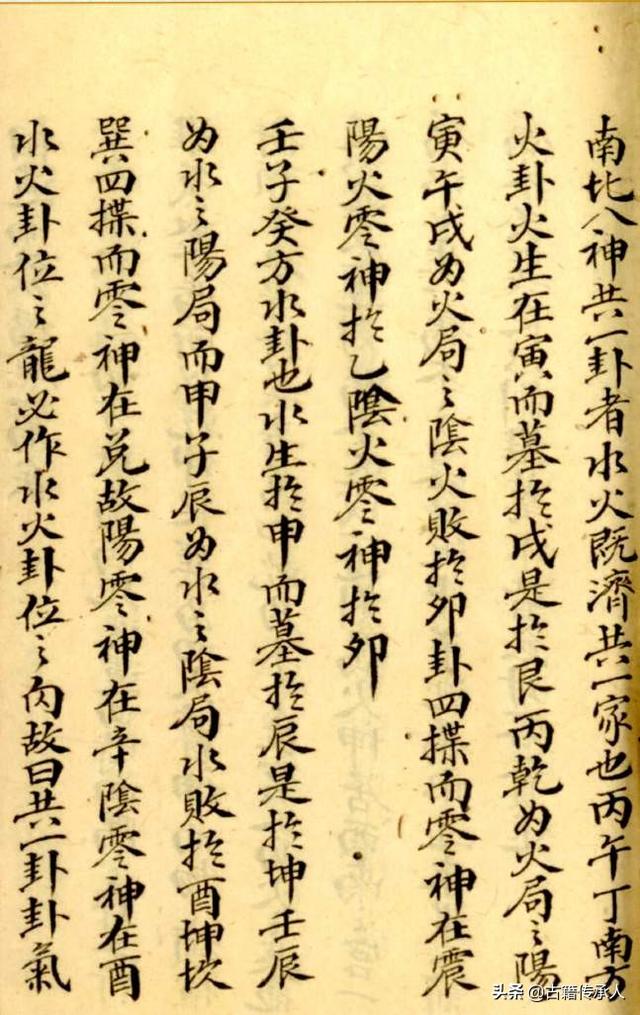 南北八神共一卦者水火既濟共一家也丙午丁南方
火卦火生在寅而墓於戌是於艮丙乾为火局之陽
寅午戌为火局之陰火敗於卯卦四揲而零神在震
陽火零神於乙陰火零神於卯
壬子癸方水卦也水生於申而墓於辰是於坤壬辰
为水之陽局而申子辰为水之陰局水敗於酉坤坎
巽四揲而零神在兌故陽零神在辛陰零神在酉
水火卦位之龍必作水火卦位之内故曰共一卦卦氣
头条 @古籍传承人